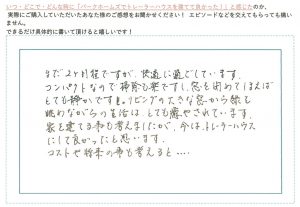 いつ・どこで・どんな時に「パークホームズでトレーラーハウスを建てて良かった!」と感じたのか、
実際にご購入していただいたあなた様のご感想をお聞かせください! エピソードなどを交えてもらっても構いません。
できるだけ具体的に書いて頂けると嬉しいです!
まだ2ヶ月程ですが、快適に過ごしています。
コンパクトなので掃除も楽ですし、窓を閉めていれば
とても静かです。リビングの大きな窓から緑を
眺めながらの生活はとても癒やされています。
家を建てる事も考えましたが、今はトレーラーハウス
にして良かったと思います。
コストや将来の事も考えると‥‥